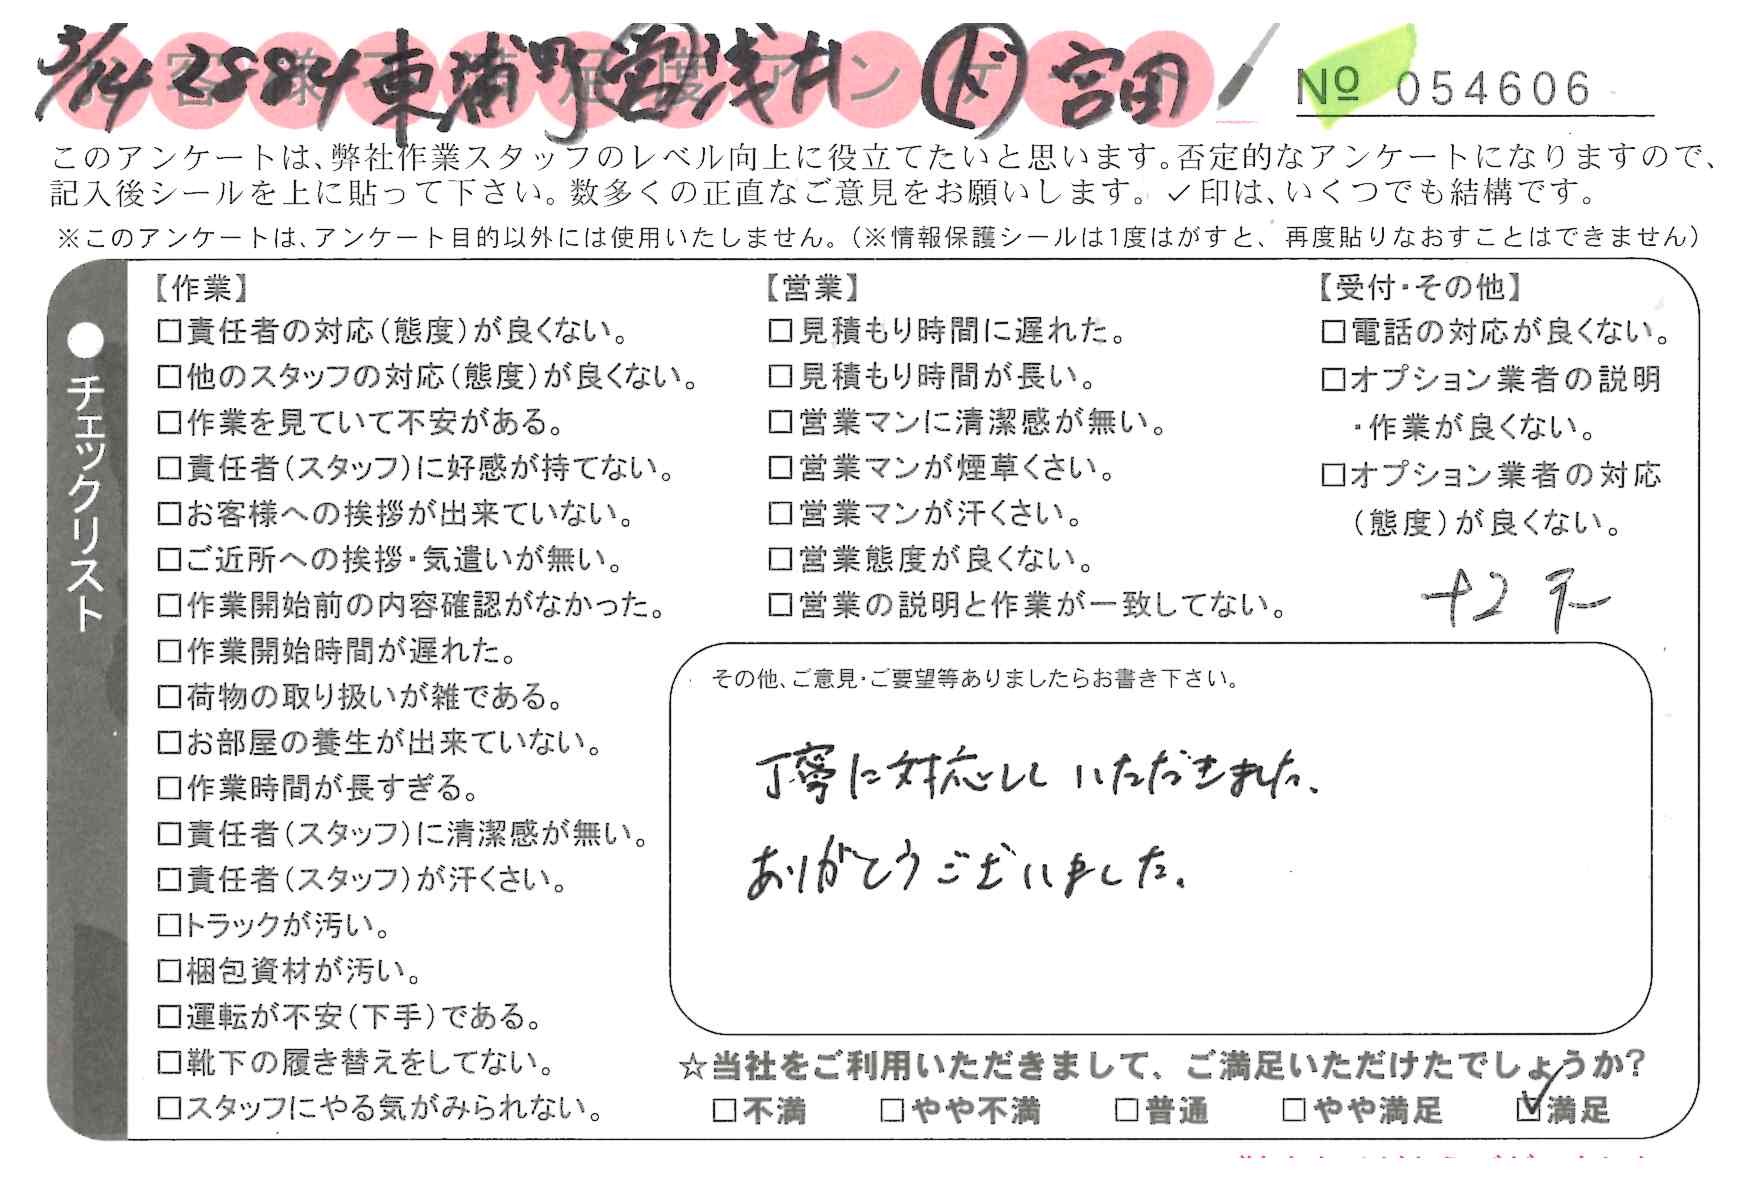 3/14 2884 東浦町 営 浅井 ド 宮田
お客様満足度アンケート
№ 054606
このアンケートは、弊社作業スタッフのレベル向上に役立てたいと思います。否定的なアンケートになりますので、
記入後シールを上に貼って下さい。数多くの正直なご意見をお願いします。✓印は、いくつでも結構です。
※このアンケートは、アンケート目的以外には使用いたしません。(※情報保護シールは1度はがすと、再度貼りなおすことはできません)
●チェックリスト
【作業】
□責任者の対応(態度)が良くない。
□他のスタッフの対応(態度)が良くない。
□作業を見ていて不安がある。
□責任者(スタッフ)に好感が持てない。
□お客様への挨拶が出来ていない。
□ご近所への挨拶・気遣いが無い。
□作業開始前の内容確認がなかった。
□作業開始時間が遅れた。
□荷物の取り扱いが雑である。
□お部屋の養生が出来ていない。
□作業時間が長すぎる。
□責任者(スタッフ)に清潔感が無い。
□責任者(スタッフ)が汗くさい。
□トラックが汚い。
□梱包資材が汚い。
□運転が不安(下手)である。
□靴下の履き替えをしてない。
□スタッフにやる気がみられない。
【営業】
□見積もり時間に遅れた。
□見積もり時間が長い。
□営業マンに清潔感が無い。
□営業マンが煙草くさい。
□営業マンが汗くさい。
□営業態度が良くない。
□営業の説明と作業が一致してない。
【受付・その他】
□電話の対応が良くない。
□オプション業者の説明
・作業が良くない。
□オプション業者の対応
(態度)が良くない。
+2
その他、ご意見・ご要望等ありましたらお書き下さい。
丁寧に対応していただきました、
ありがとうございました。
☆当社をご利用いただきまして、ご満足いただけたでしょうか?
□不満 □やや不満 □普通 □やや満足 ☑満足